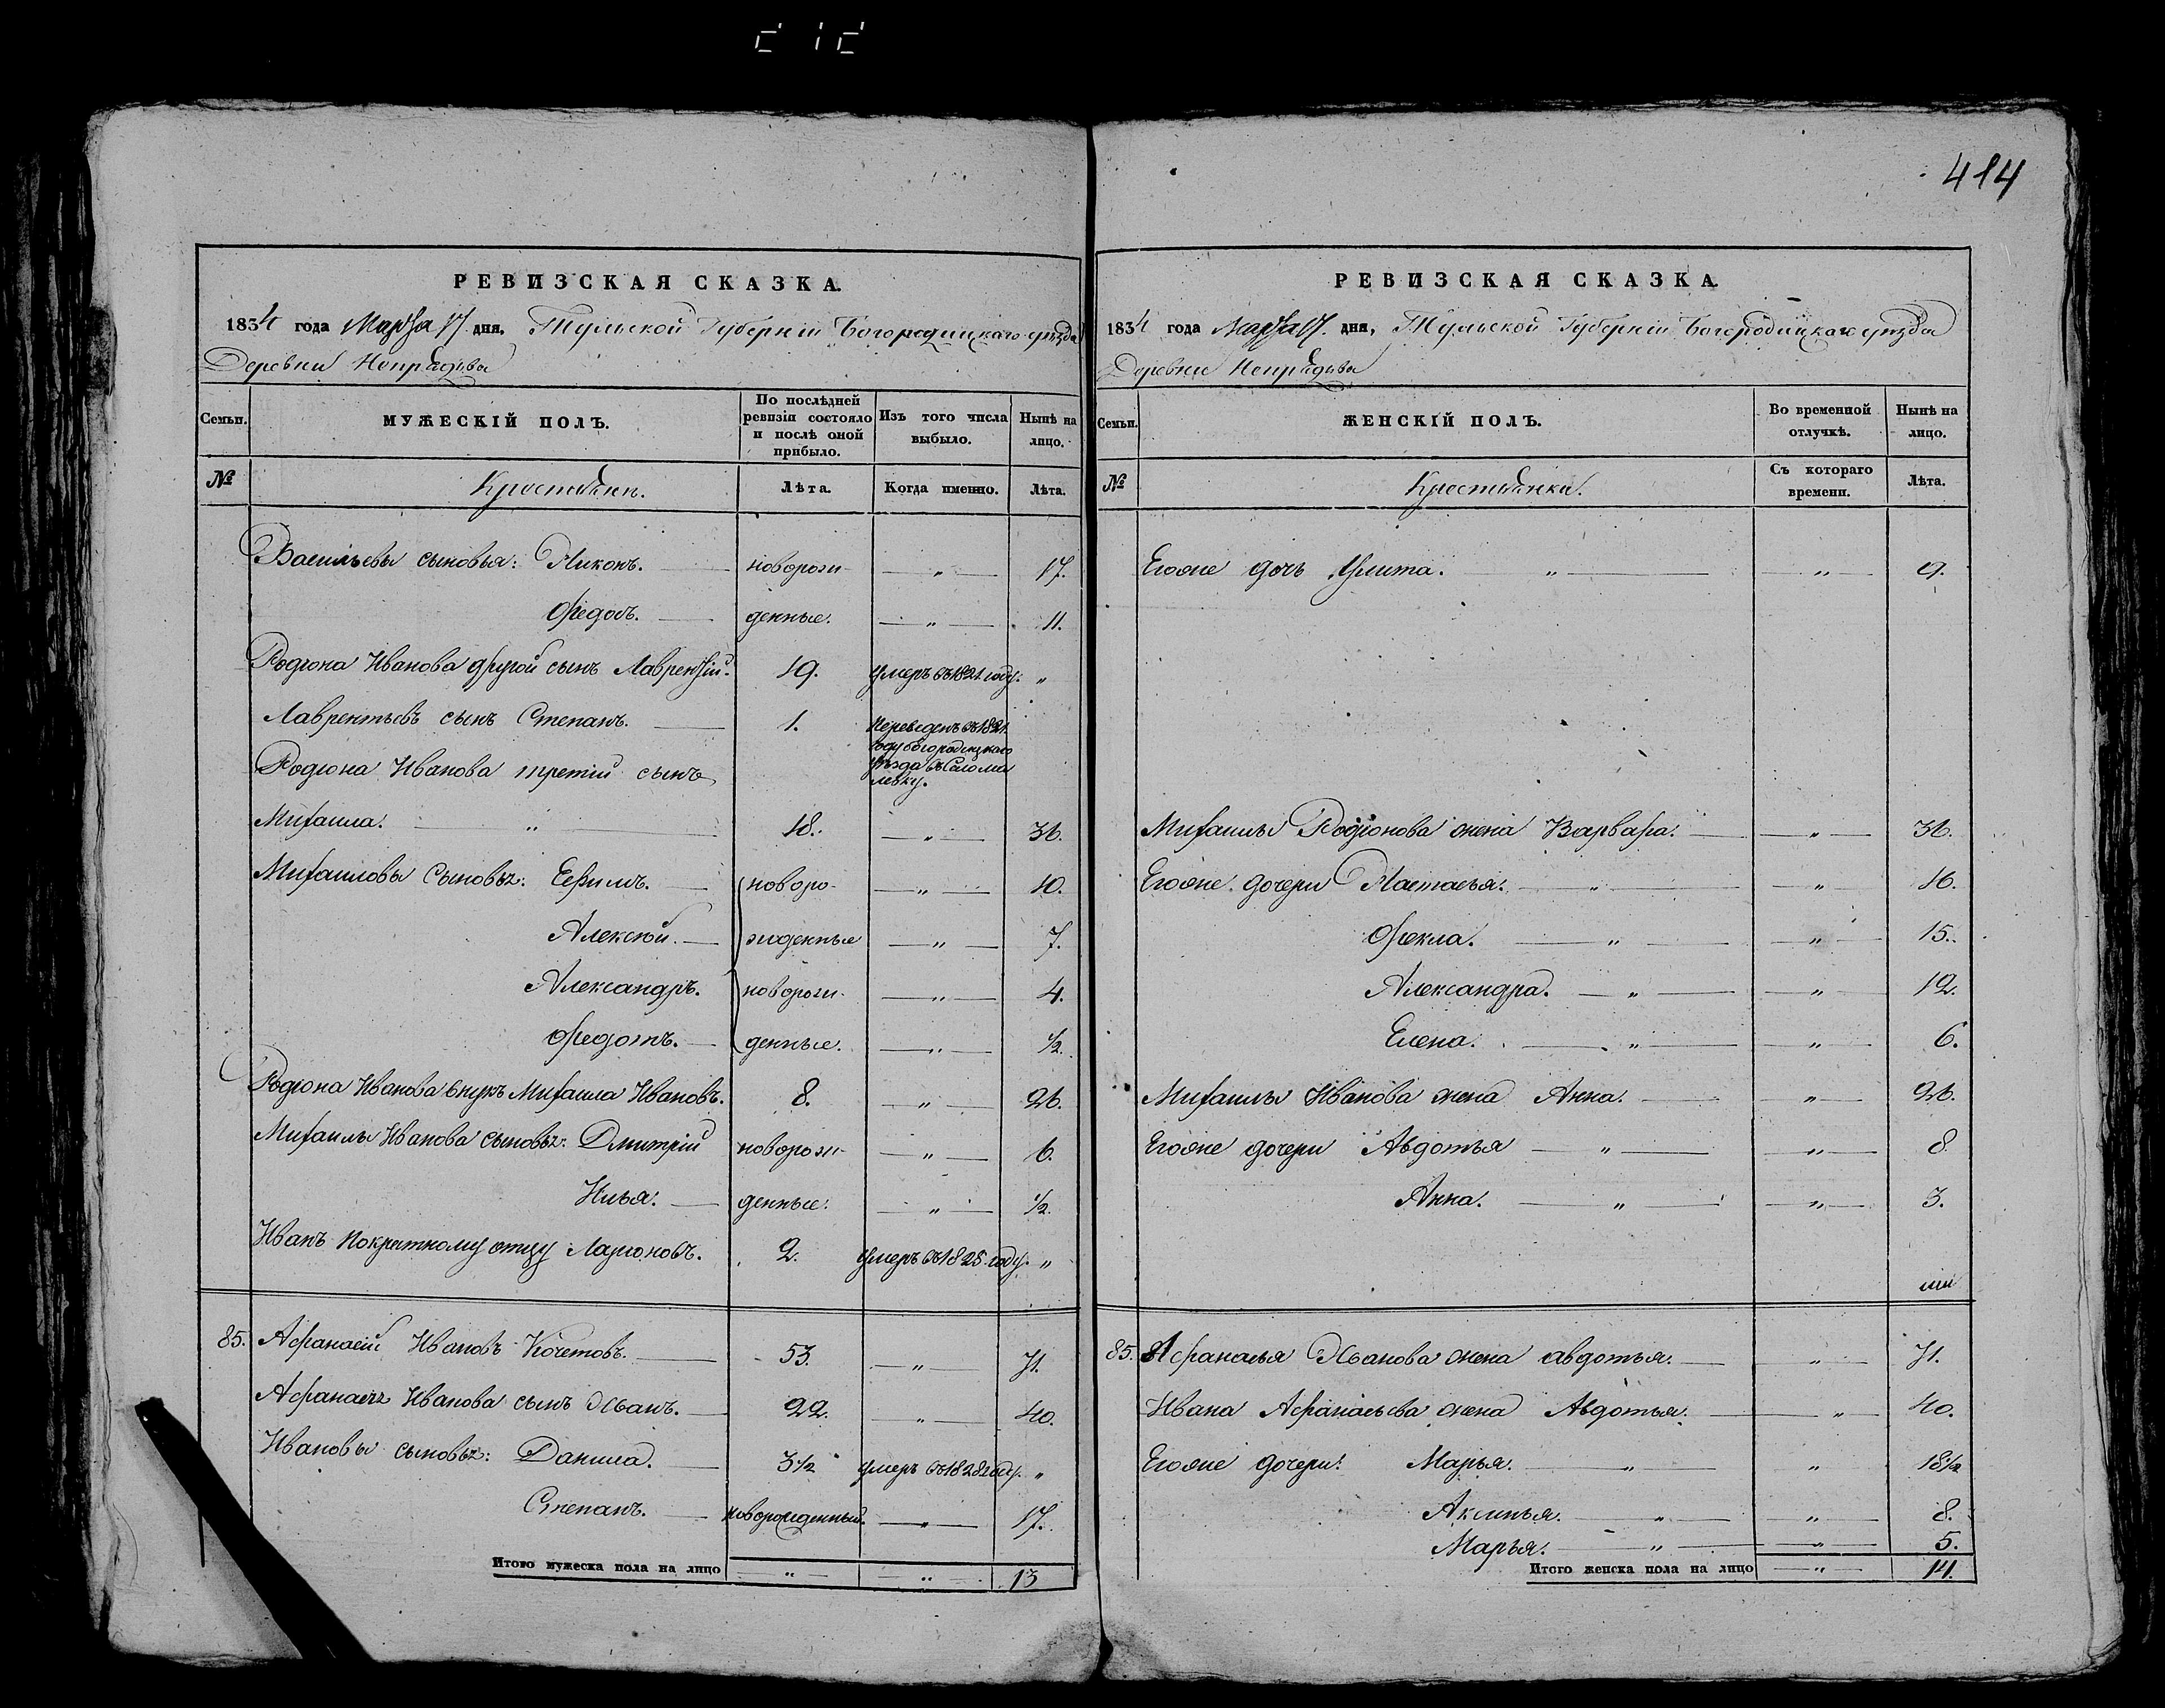 414
РЕВИЗСКАЯ СКАЗКА.
1834 года Марта 17 дня, Тульской Губерніи Богородицкаго уѣзда
Деревни Непрядва
Семьи. МУЖЕСКІЙ ПОЛЪ. По послѣдней ревизіи состояло и послѣ оной прибыло. Изъ того числа выбыло. Нынѣ на лицо.
№ Крестьяне. Лѣта. Когда именно. Лѣта.
Васильевы сыновья: Никонъ. новорож- " 17.
Федоръ. денные. " 11.
Родіона Иванова другой сынъ Лаврентій. 19. умеръ въ 1821 году. "
Лаврентьевъ сынъ Степанъ. 1. Переведенъ въ 1821.
году богородицкаго
Родіона Иванова третій сынъ уѣзда въ Солома
левку.
Михаила. " 18. " 36.
Михаиловы Сыновьѧ: Ефимъ. новоро- " 10.
Алексѣй. жденные " 7.
Александръ. новорож- " 4.
Федотъ. денные. " 1/2.
Родіона Иванова внукъ Михаила Ивановъ. 8. " 26.
Михаилы Иванова сыновьѧ: Дмитрій новорож- " 6.
Илья. денные. " 1/2.
Иванъ по крестному отцу Ларіоновъ. 2. умеръ въ 1825 году. "
85. Афанасій Ивановъ Кочетовъ. 53. " 71.
Афанасьѧ Иванова сынъ Иванъ. 22. " 40.
Ивановы сыновьѧ: Данила. 3 1/2 умеръ въ 1828 году. "
Степанъ. новорожденный. " 17.
Итого мужеска пола на лицо " " 13
РЕВИЗСКАЯ СКАЗКА.
1834 года Марта 17. дня, Тульской Губерніи Богородицкаго уѣзда
Деревни Непрядва
Семьи. ЖЕНСКІЙ ПОЛЪ. Во временной отлучкѣ. Нынѣ на лицо.
№ Крестьянки. Съ котораго времени. Лѣта.
Егоже дочь Улита. " " 9.
Михаилы Родіонова жена Варвара. " 36.
Егоже дочери Настасья. " " 16.
Фекла. " " 15.
Александра. " " 12.
Елена. " " 6.
Михаилы Иванова жена Анна. " 26.
Егоже дочери Авдотья " " 8.
Анна. " " 3.
85. Афанасья Иванова жена авдотья. " 71.
Ивана Афанасьева жена Авдотья. " 40.
Егоже дочери: Марья. " " 18 1/2
Аксинья. " " 8.
Марья. " " 5.
Итого женска пола на лицо " 14.